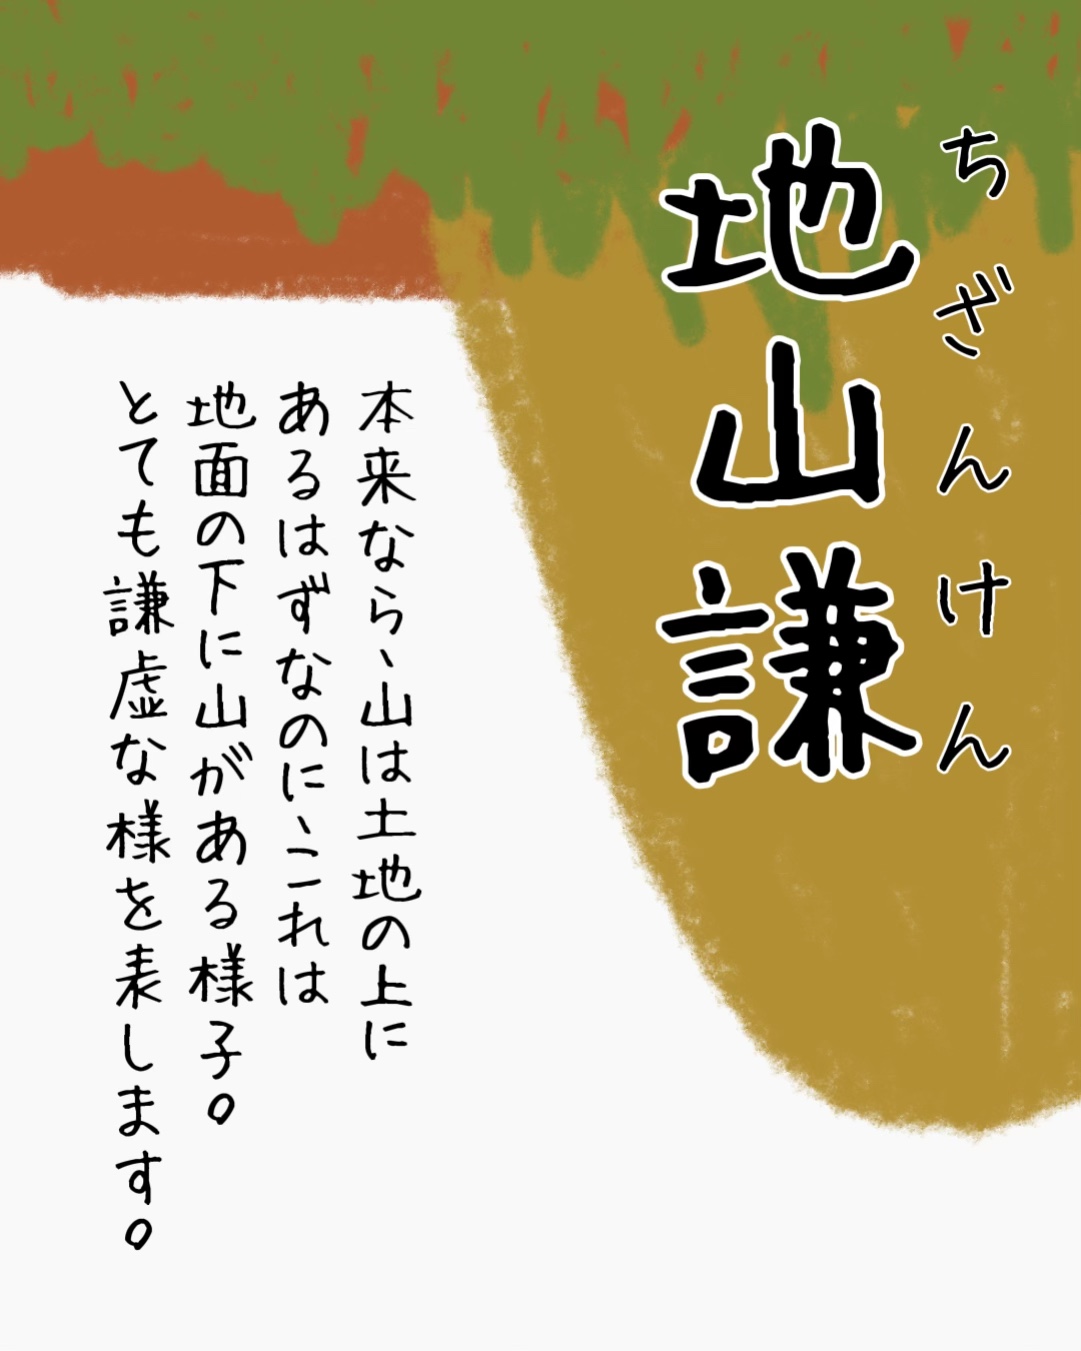 ちざんけん
地山謙
本来なら、山は土地の上に
あるはずなのに、これは
地面の下に山がある様子。
とても謙虚な様を表します。